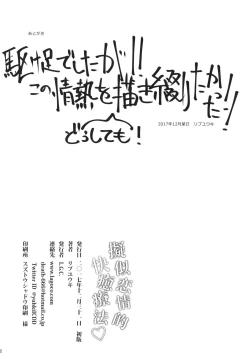 あとがき
駆け足でしたが!!
この情熱を描き綴りたかった!!
どうしても!
2017年12月某日 リブユウキ
擬似恋情的
快癒療法♡
発行日:二〇一七年十二月三十一日 初版
著者 リブユウキ
発行者 L.G.C.
連絡先 www.lugovo.com
Twitter ID @yubkiICDD
印刷所 スズトウシャドウ印刷 様